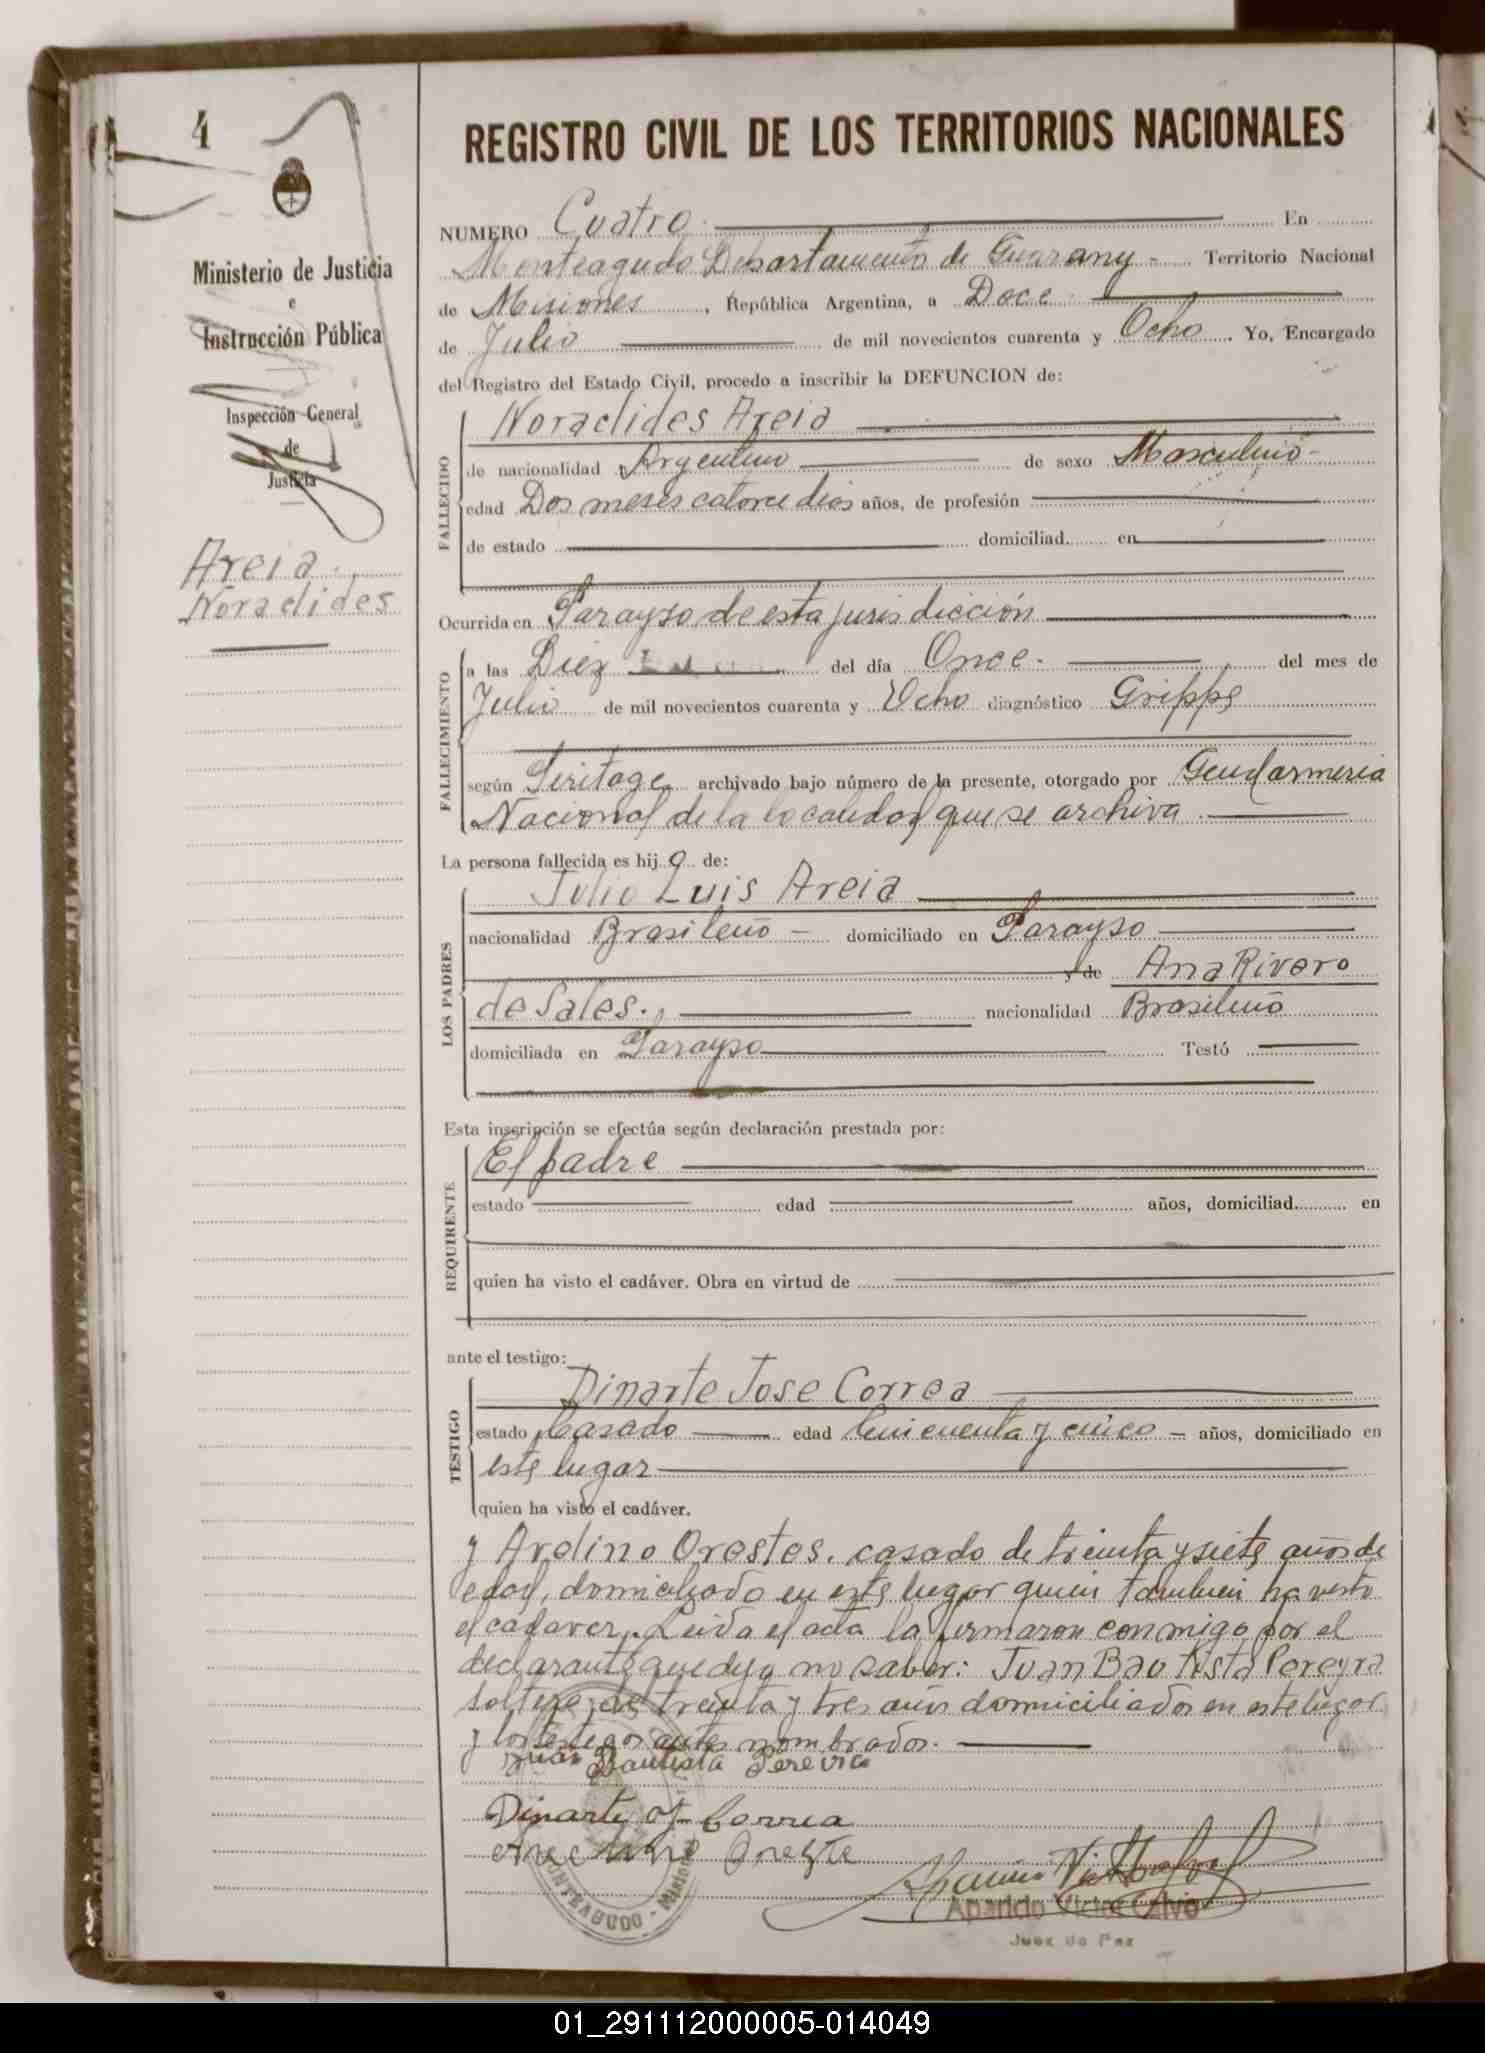 4
REGISTRO CIVIL DE LOS TERRITORIOS NACIONALES
Ministerio de Justicia
e
Instrucción Pública
Inspección General
de
Justicia
Areia
Noraclides
NUMERO Cuatro. En
Monteagudo Departamento de Guarany - Territorio Nacional
de Misiones, República Argentina, a Doce
de Julio de mil novecientos cuarenta y Ocho. Yo, Encargado
del Registro del Estado Civil, procedo a inscribir la DEFUNCION de:
FALLECIDO
Noraclides Areia
de nacionalidad Argentino de sexo Masculino -
edad Dos meses catorce dias años, de profesión
de estado domiciliad en
Ocurrida en Parayso de esta jurisdicción
FALLECIMIENTO
a las Diez del día Once. del mes de
Julio de mil novecientos cuarenta y Ocho diagnóstico Grippe
según Peritage archivado bajo número de la presente, otorgado por Gendarmeria
Nacional de la localidad que se archiva.
La persona fallecida es hijo de:
LOS PADRES
Julio Luis Areia
nacionalidad Brasileño - domiciliado en Parayso
y de Ana Rivero
de Sales. nacionalidad Brasileño
domiciliada en Parayso Testó
Esta inscripción se efectúa según declaración prestada por:
REQUIRENTE
El padre
estado edad años, domiciliad en
quien ha visto el cadáver. Obra en virtud de
ante el testigo:
TESTIGO
Dinarte Jose Correa
estado Casado edad Cincuenta y cinco - años, domiciliado en
este lugar
quien ha visto el cadáver.
y Avelino Orestes. casado de treinta y siete años de
edad, domiciliado en este lugar quien tambien ha visto
el cadaver. Leida el acta la firmaron conmigo por el
declarante que dijo no saber: Juan Bautista Pereyra
soltero, de treinta y tres años domiciliado en este lugar
y los testigos antes nombrados.
Juan Bautista Pereira
Dinarte J Correa
Avelino Oreste
MONTEAGUDO - MISIONES
Aparicio Victor Calvo
Juez de Paz
01_291112000005-014049